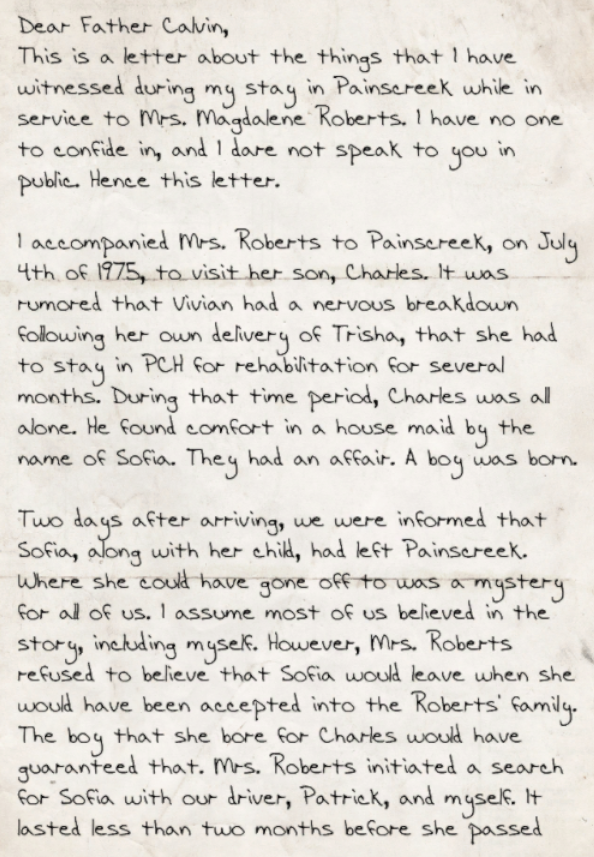 Dear Father Calvin,
This is a letter about the things that I have
witnessed during my stay in Painscreek while in
service to Mrs. Magdalene Roberts. I have no one
to confide in, and I dare not speak to you in
public. Hence this letter.
I accompanied Mrs. Roberts to Painscreek, on July
4th of 1975, to visit her son, Charles. It was
rumored that Vivian had a nervous breakdown
following her own delivery of Trisha, that she had
to stay in PCH for rehabilitation for several
months. During that time period, Charles was all
alone. He found comfort in a house maid by the
name of Sofia. They had an affair. A boy was born.
Two days after arriving, we were informed that
Sofia, along with her child, had left Painscreek.
Where she could have gone off to was a mystery
for all of us. I assume most of us believed in the
story, including myself. However, Mrs. Roberts
refused to believe that Sofia would leave when she
would have been accepted into the Roberts' family.
The boy that she bore for Charles would have
guaranteed that. Mrs. Roberts initiated a search
for Sofia with our driver, Patrick, and myself. It
lasted less than two months before she passed